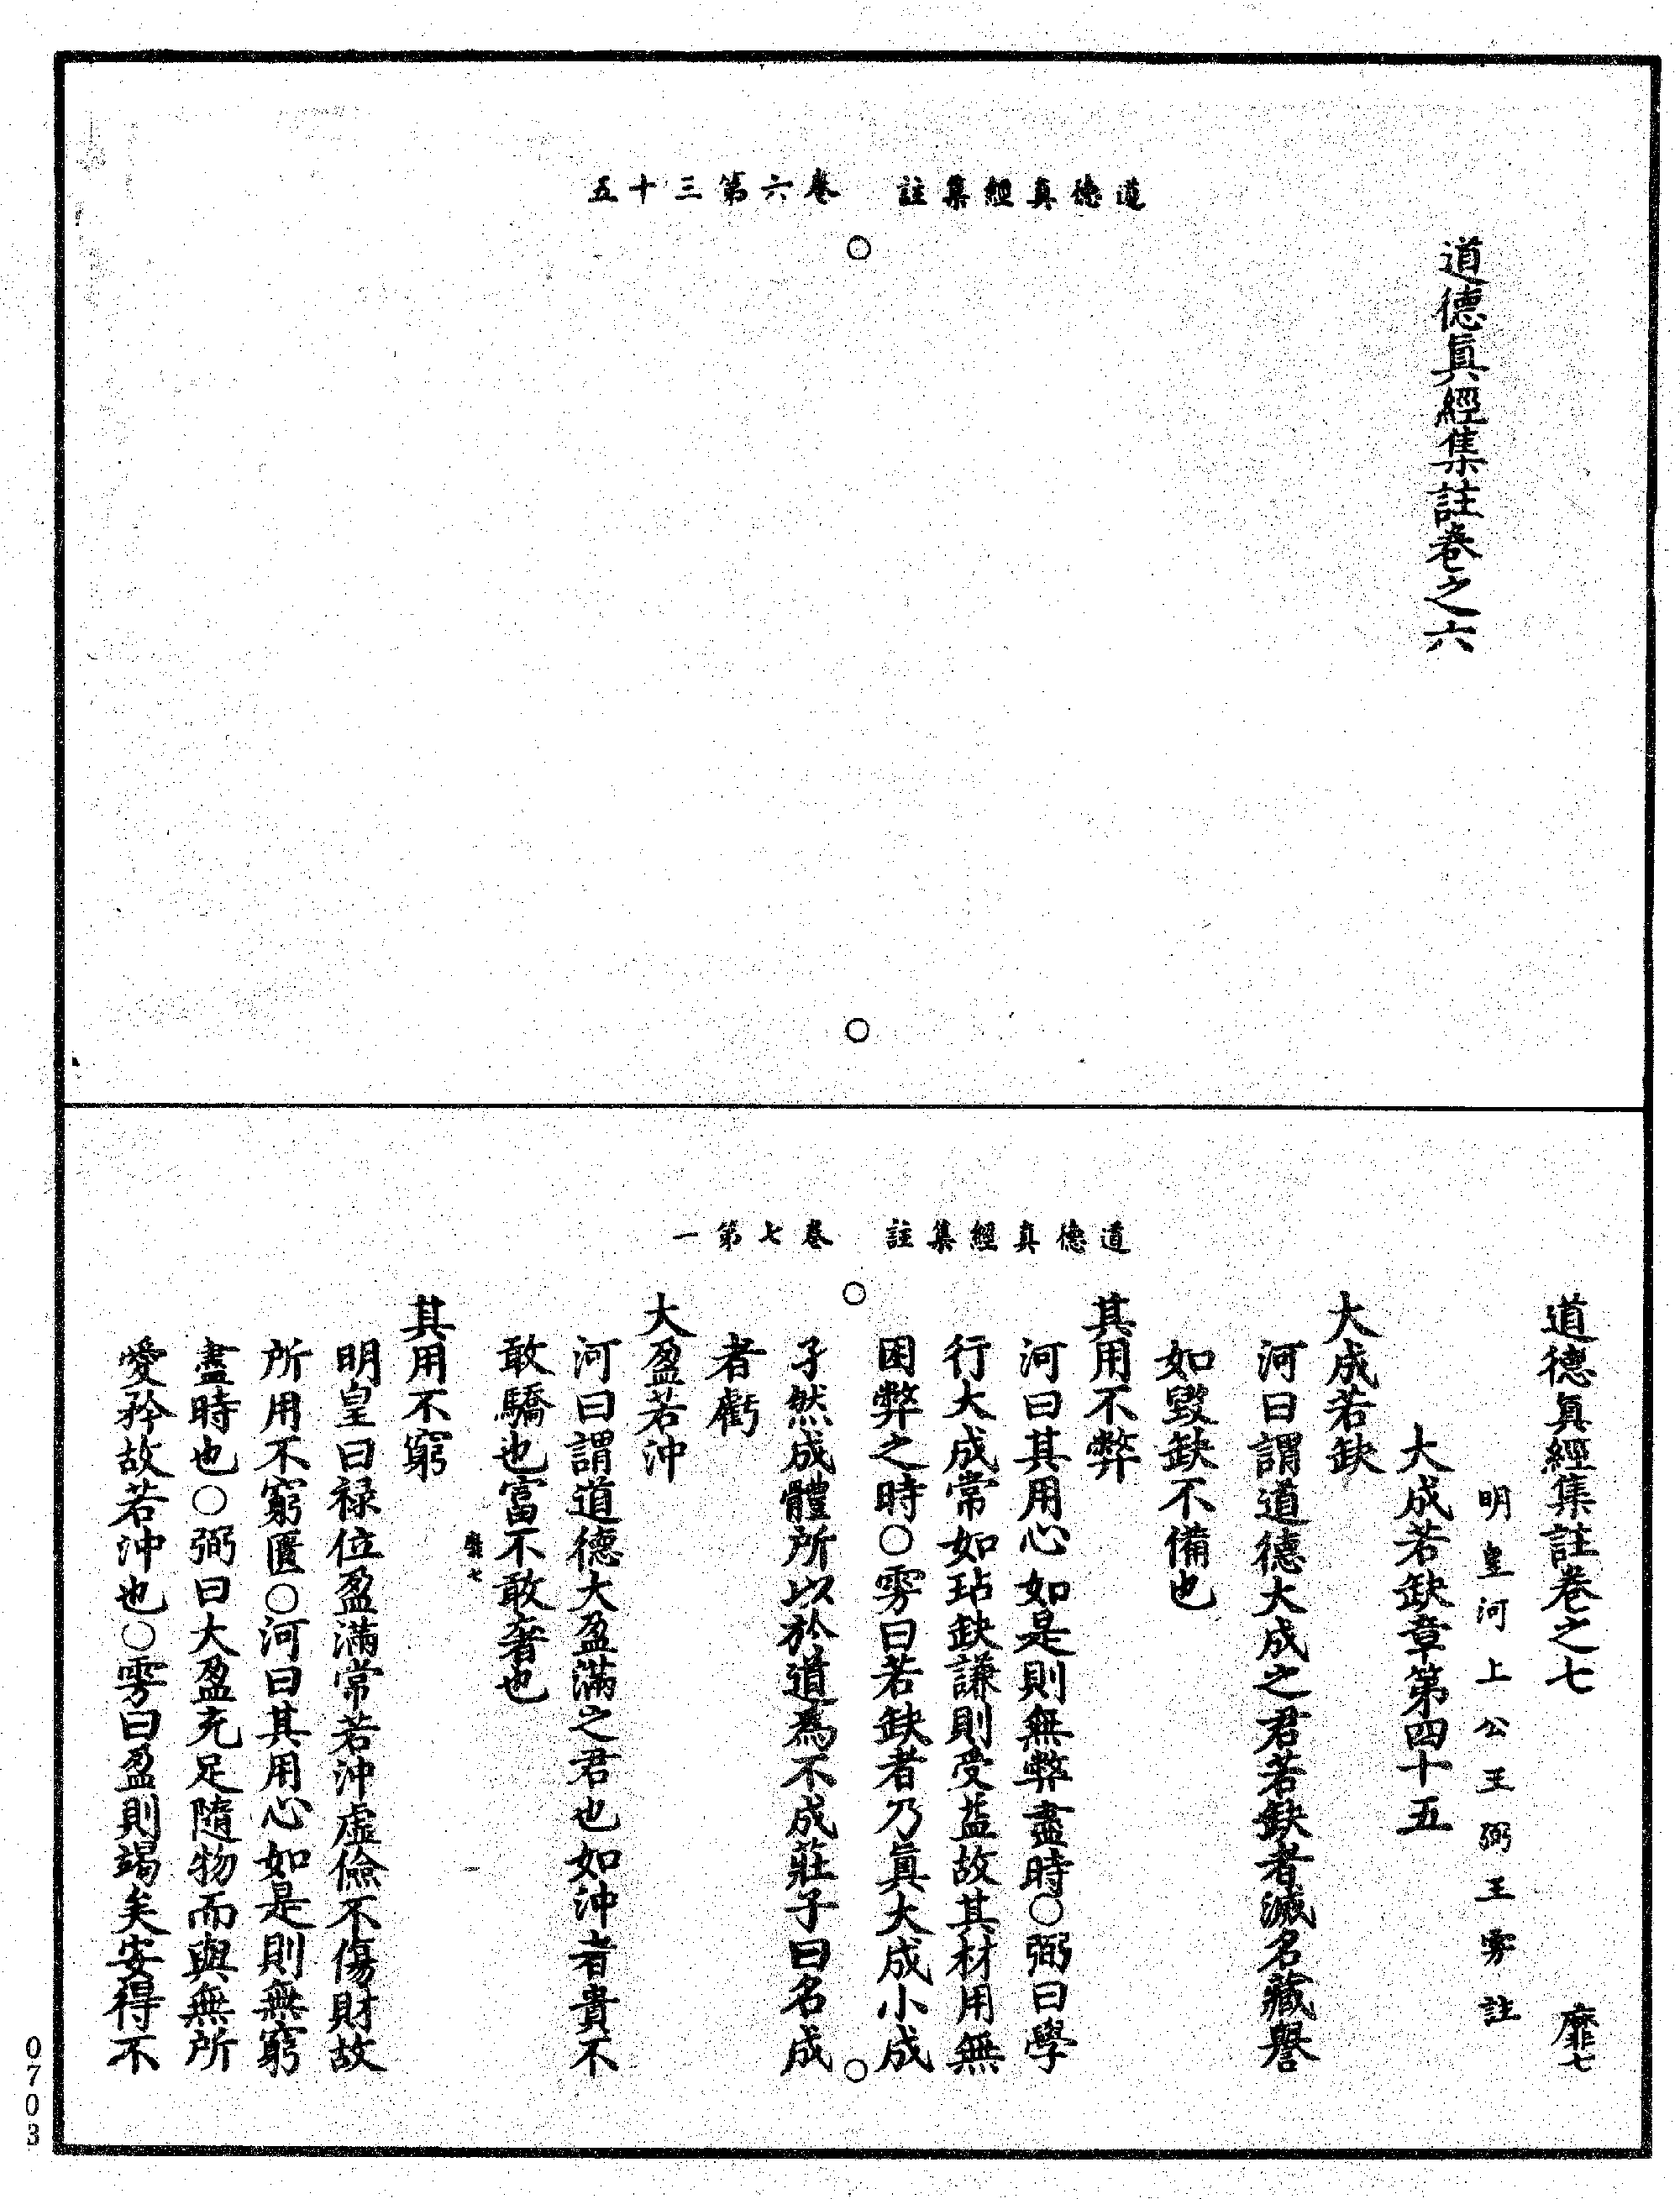 道德真經集註　卷六第三十五
道德眞經集註卷之六
道德真經集註　卷七第一
道德眞經集註卷之七　靡七
明皇河上公王弼王雱註
大成若缺章第四十五
大成若缺
河曰謂道德大成之君若缺者滅名藏譽
如毀缺不備也
其用不弊
河曰其用心如是則無弊盡時○弼曰學
行大成常如玷缺謙則受益故其材用無
困弊之時○雱曰若缺者乃眞大成小成
孑然成體所以於道爲不成莊子曰名成
者虧
大盈若沖
河曰謂道德大盈滿之君也如沖者貴不
敢驕也富不敢奢也
靡七
其用不窮
明皇曰祿位盈滿常若沖虛儉不傷財故
所用不窮匱○河曰其用心如是則無窮
盡時也○弼曰大盈充足隨物而與無所
愛矜故若沖也○雱曰盈則竭矣安得不
0703